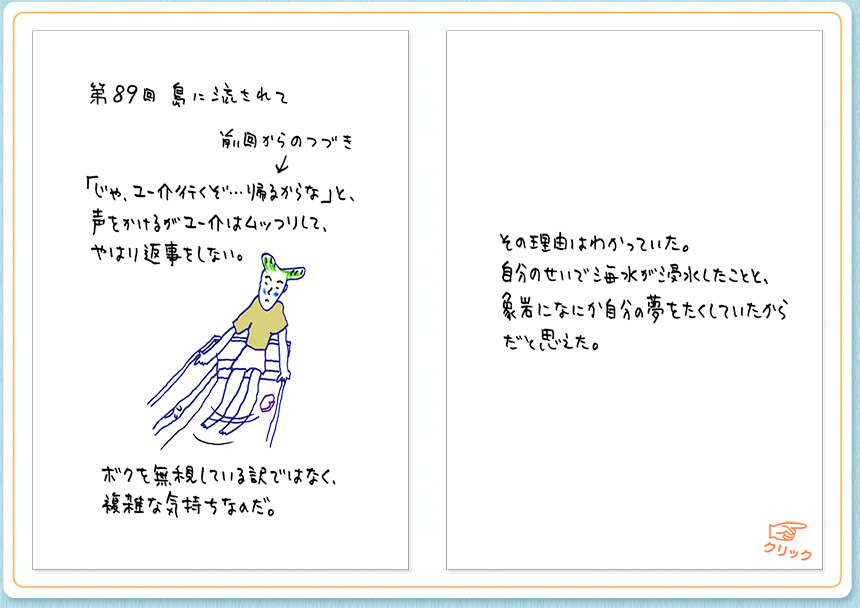 第89回 島に流されて
前回からのつづき
「じゃ、ユー介行くぞ…帰るからな」と、
声をかけるがユー介はムッツリして、
やはり返事をしない。
ボクを無視している訳ではなく、
複雑な気持ちなのだ。
その理由はわかっていた。
自分のせいで海水が浸水したことと、
象岩になにか自分の夢をたくしていたから
だと思えた。
クリック